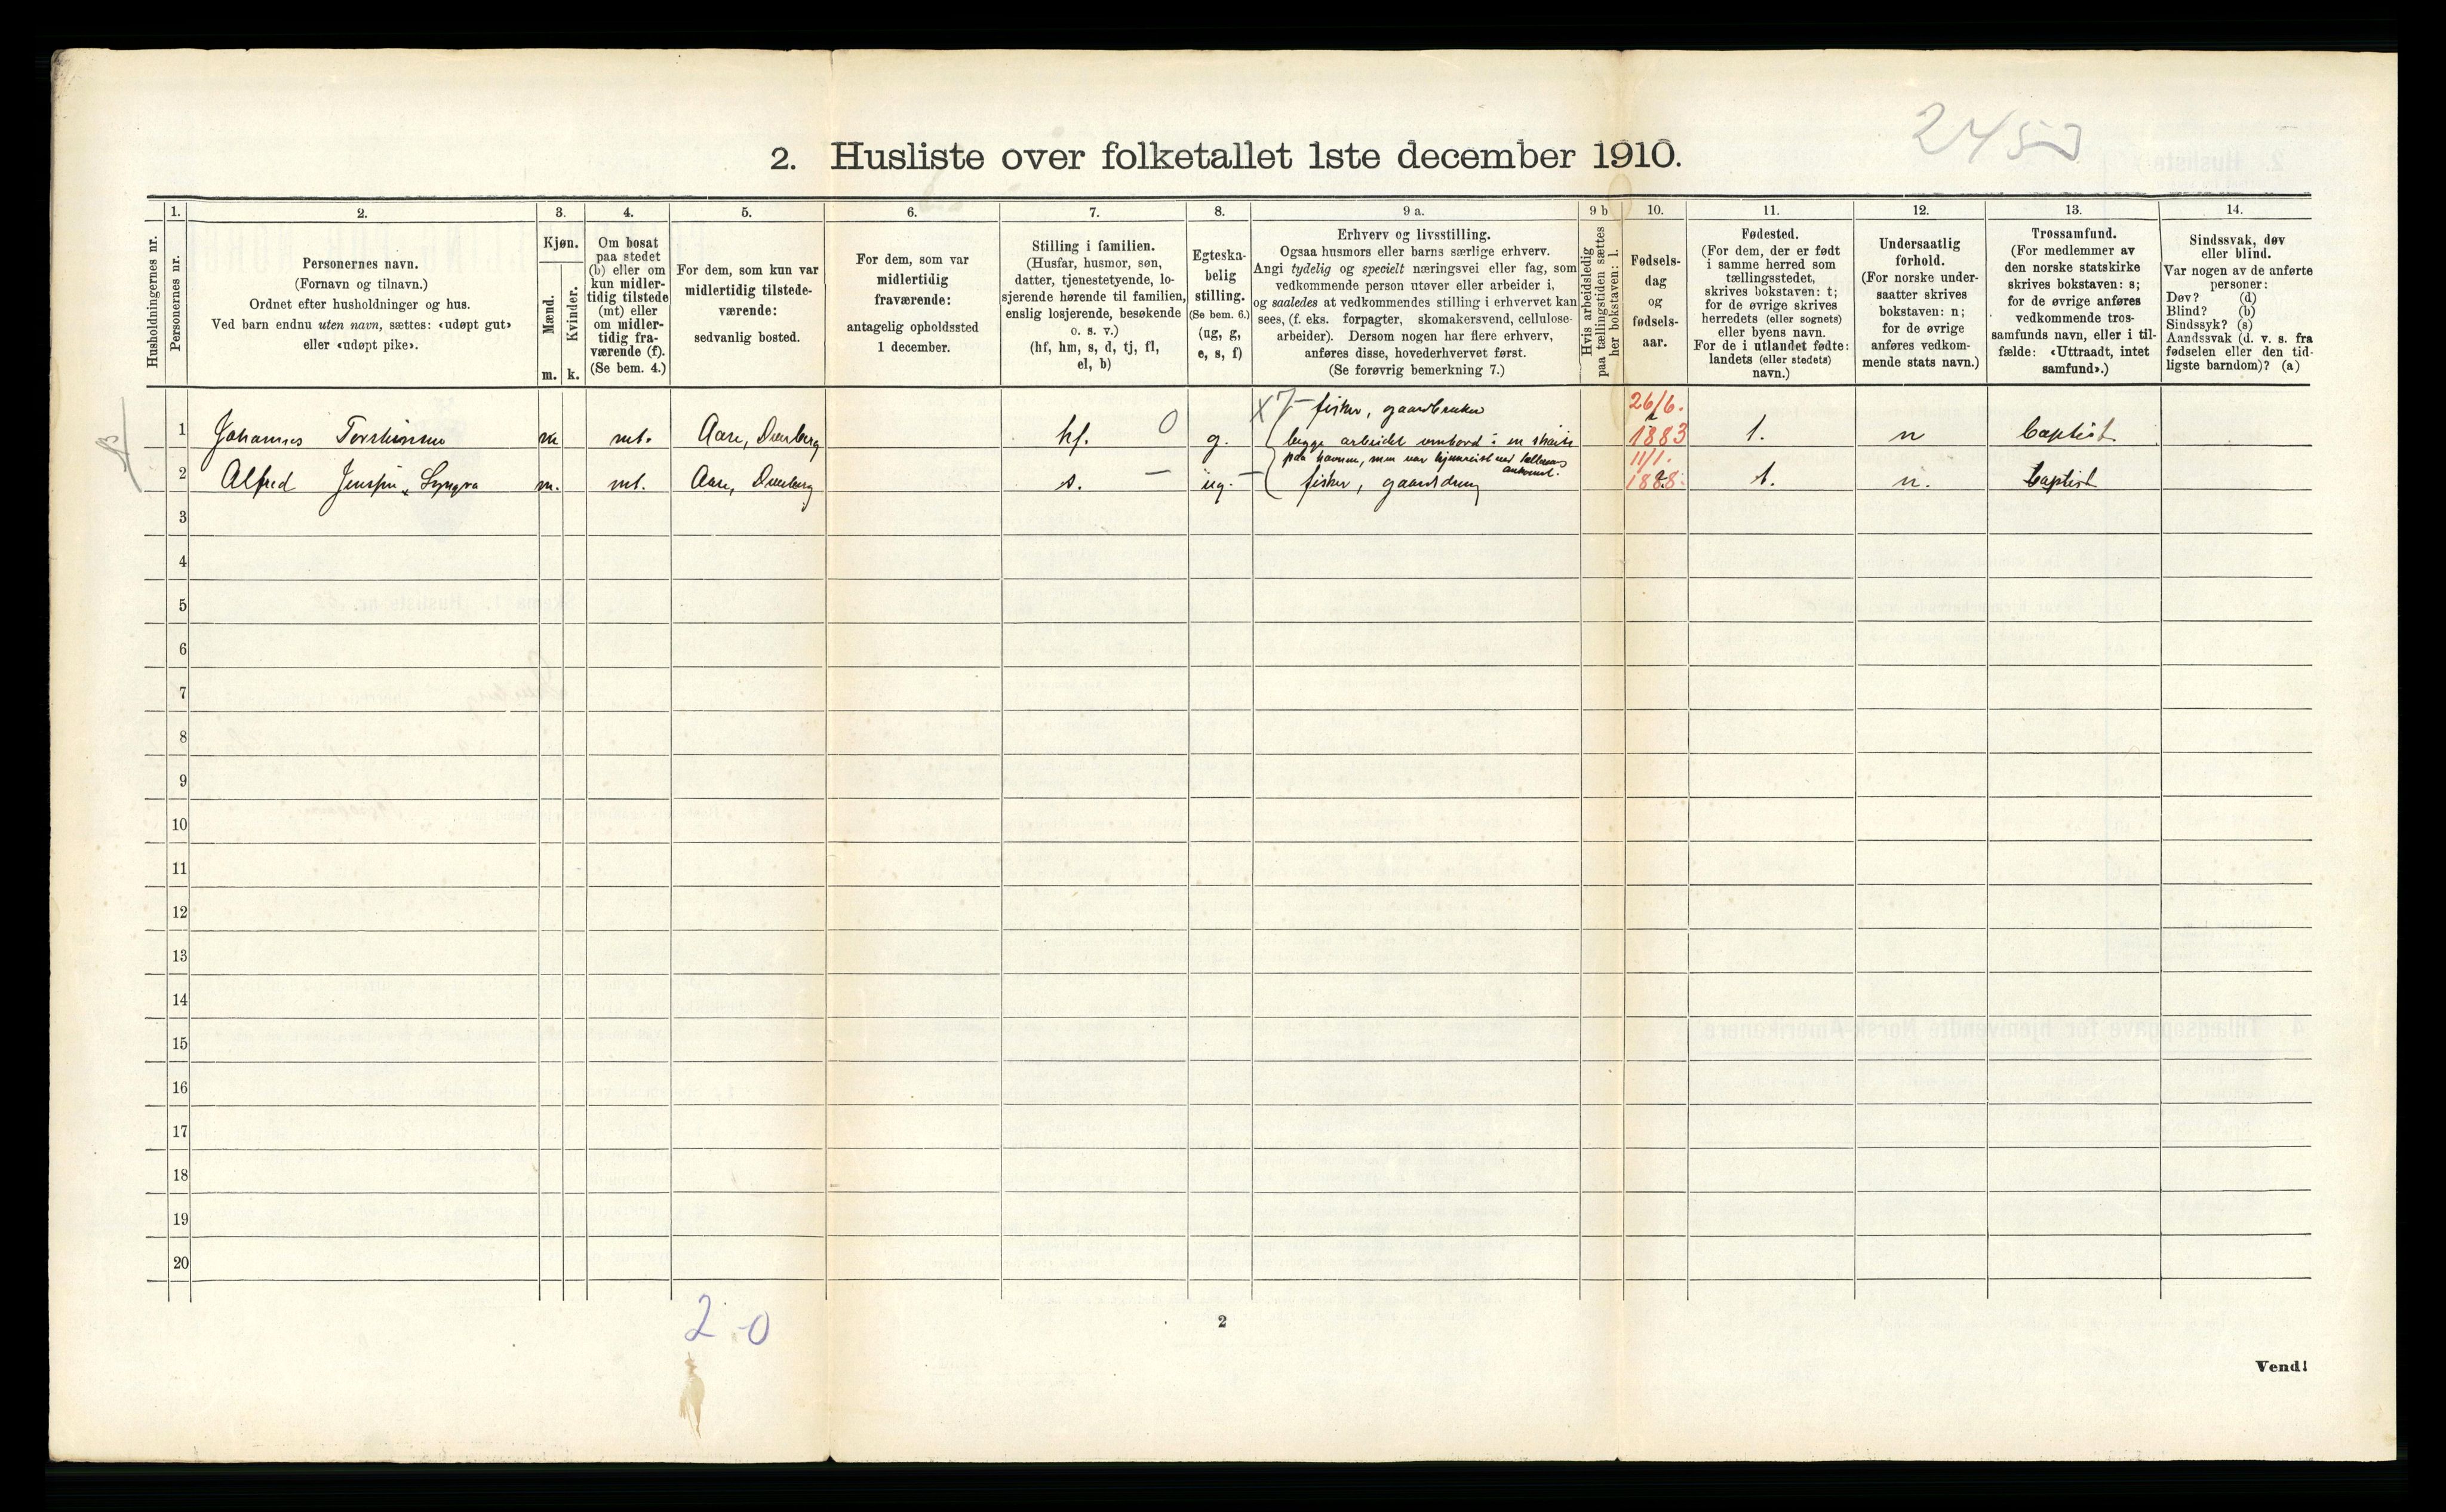 2453
2. Husliste over folketallet 1ste december 1910.
Husholdningernes nr.
1.
Personernes nr.
2.
Personernes navn.
(Fornavn og tilnavn.)
Ordnet efter husholdninger og hus.
Ved barn endnu uten navn, sættes: «udøpt gut»
eller «udøpt pike».
3.
Kjøn.
Mænd.
Kvinder.
m. k.
4.
Om bosat
paa stedet
(b) eller om
kun midler-
tidig tilstede
(mt) eller
om midler-
tidig fra-
værende (f).
(Se bem. 4.)
5.
For dem, som kun var
midlertidig tilstede-
værende:
sedvanlig bosted.
6.
For dem, som var
midlertidig
fraværende:
antagelig opholdssted
1 december.
7.
Stilling i familien.
(Husfar, husmor, søn,
datter, tjenestetyende, lo-
sjerende hørende til familien,
enslig losjerende, besøkende
o. s. v.)
(hf, hm, s, d, tj, fl,
el, b)
8.
Egteska-
belig
stilling.
(Se bem. 6.)
(ug, g,
e, s, f)
9 a.
Erhverv og livsstilling.
Ogsaa husmors eller barns særlige erhverv.
Angi tydelig og specielt næringsvei eller fag, som
vedkommende person utøver eller arbeider i,
og saaledes at vedkommendes stilling i erhvervet kan
sees, (f. eks. forpagter, skomakersvend, cellulose-
arbeider). Dersom nogen har flere erhverv,
anføres disse, hovederhvervet først.
(Se forøvrig bemerkning 7.)
9 b
Hvis arbeidsledig
paa tællingstiden sættes
her bokstaven: l.
10.
Fødsels-
dag
og
fødsels-
aar.
11.
Fødested.
(For dem, der er født
i samme herred som
tællingsstedet,
skrives bokstaven: t;
for de øvrige skrives
herredets (eller sognets)
eller byens navn.
For de i utlandet fødte:
landets (eller stedets)
navn.)
12.
Undersaatlig
forhold.
(For norske under-
saatter skrives
bokstaven: n;
for de øvrige
anføres vedkom-
mende stats navn.)
13.
Trossamfund.
(For medlemmer av
den norske statskirke
skrives bokstaven: s;
for de øvrige anføres
vedkommende tros-
samfunds navn, eller i til-
fælde: «Uttraadt, intet
samfund».)
14.
Sindssvak, døv
eller blind.
Var nogen av de anførte
personer:
Døv? (d)
Blind? (b)
Sindssyk? (s)
Aandssvak (d. v. s. fra
fødselen eller den tid-
ligste barndom)? (a)
1 Johannes m mt. Aase, hf. 0 g. X 7 fisker, gaardbruker 26/6. 1883 t. n baptist
begge arbeidet ombord i en
paa havnen, men var hjemreist ved tællerens
ankomst.
2 Alfred Jenssen m. mt. Aase, s. — ug. — fisker, gaardsdreng 11/1. 1888. t. n. baptist
3
4
5
6
7
8
9
10
11
12
13
14
15
16
17
18
19
20
2-0
2
Vend!